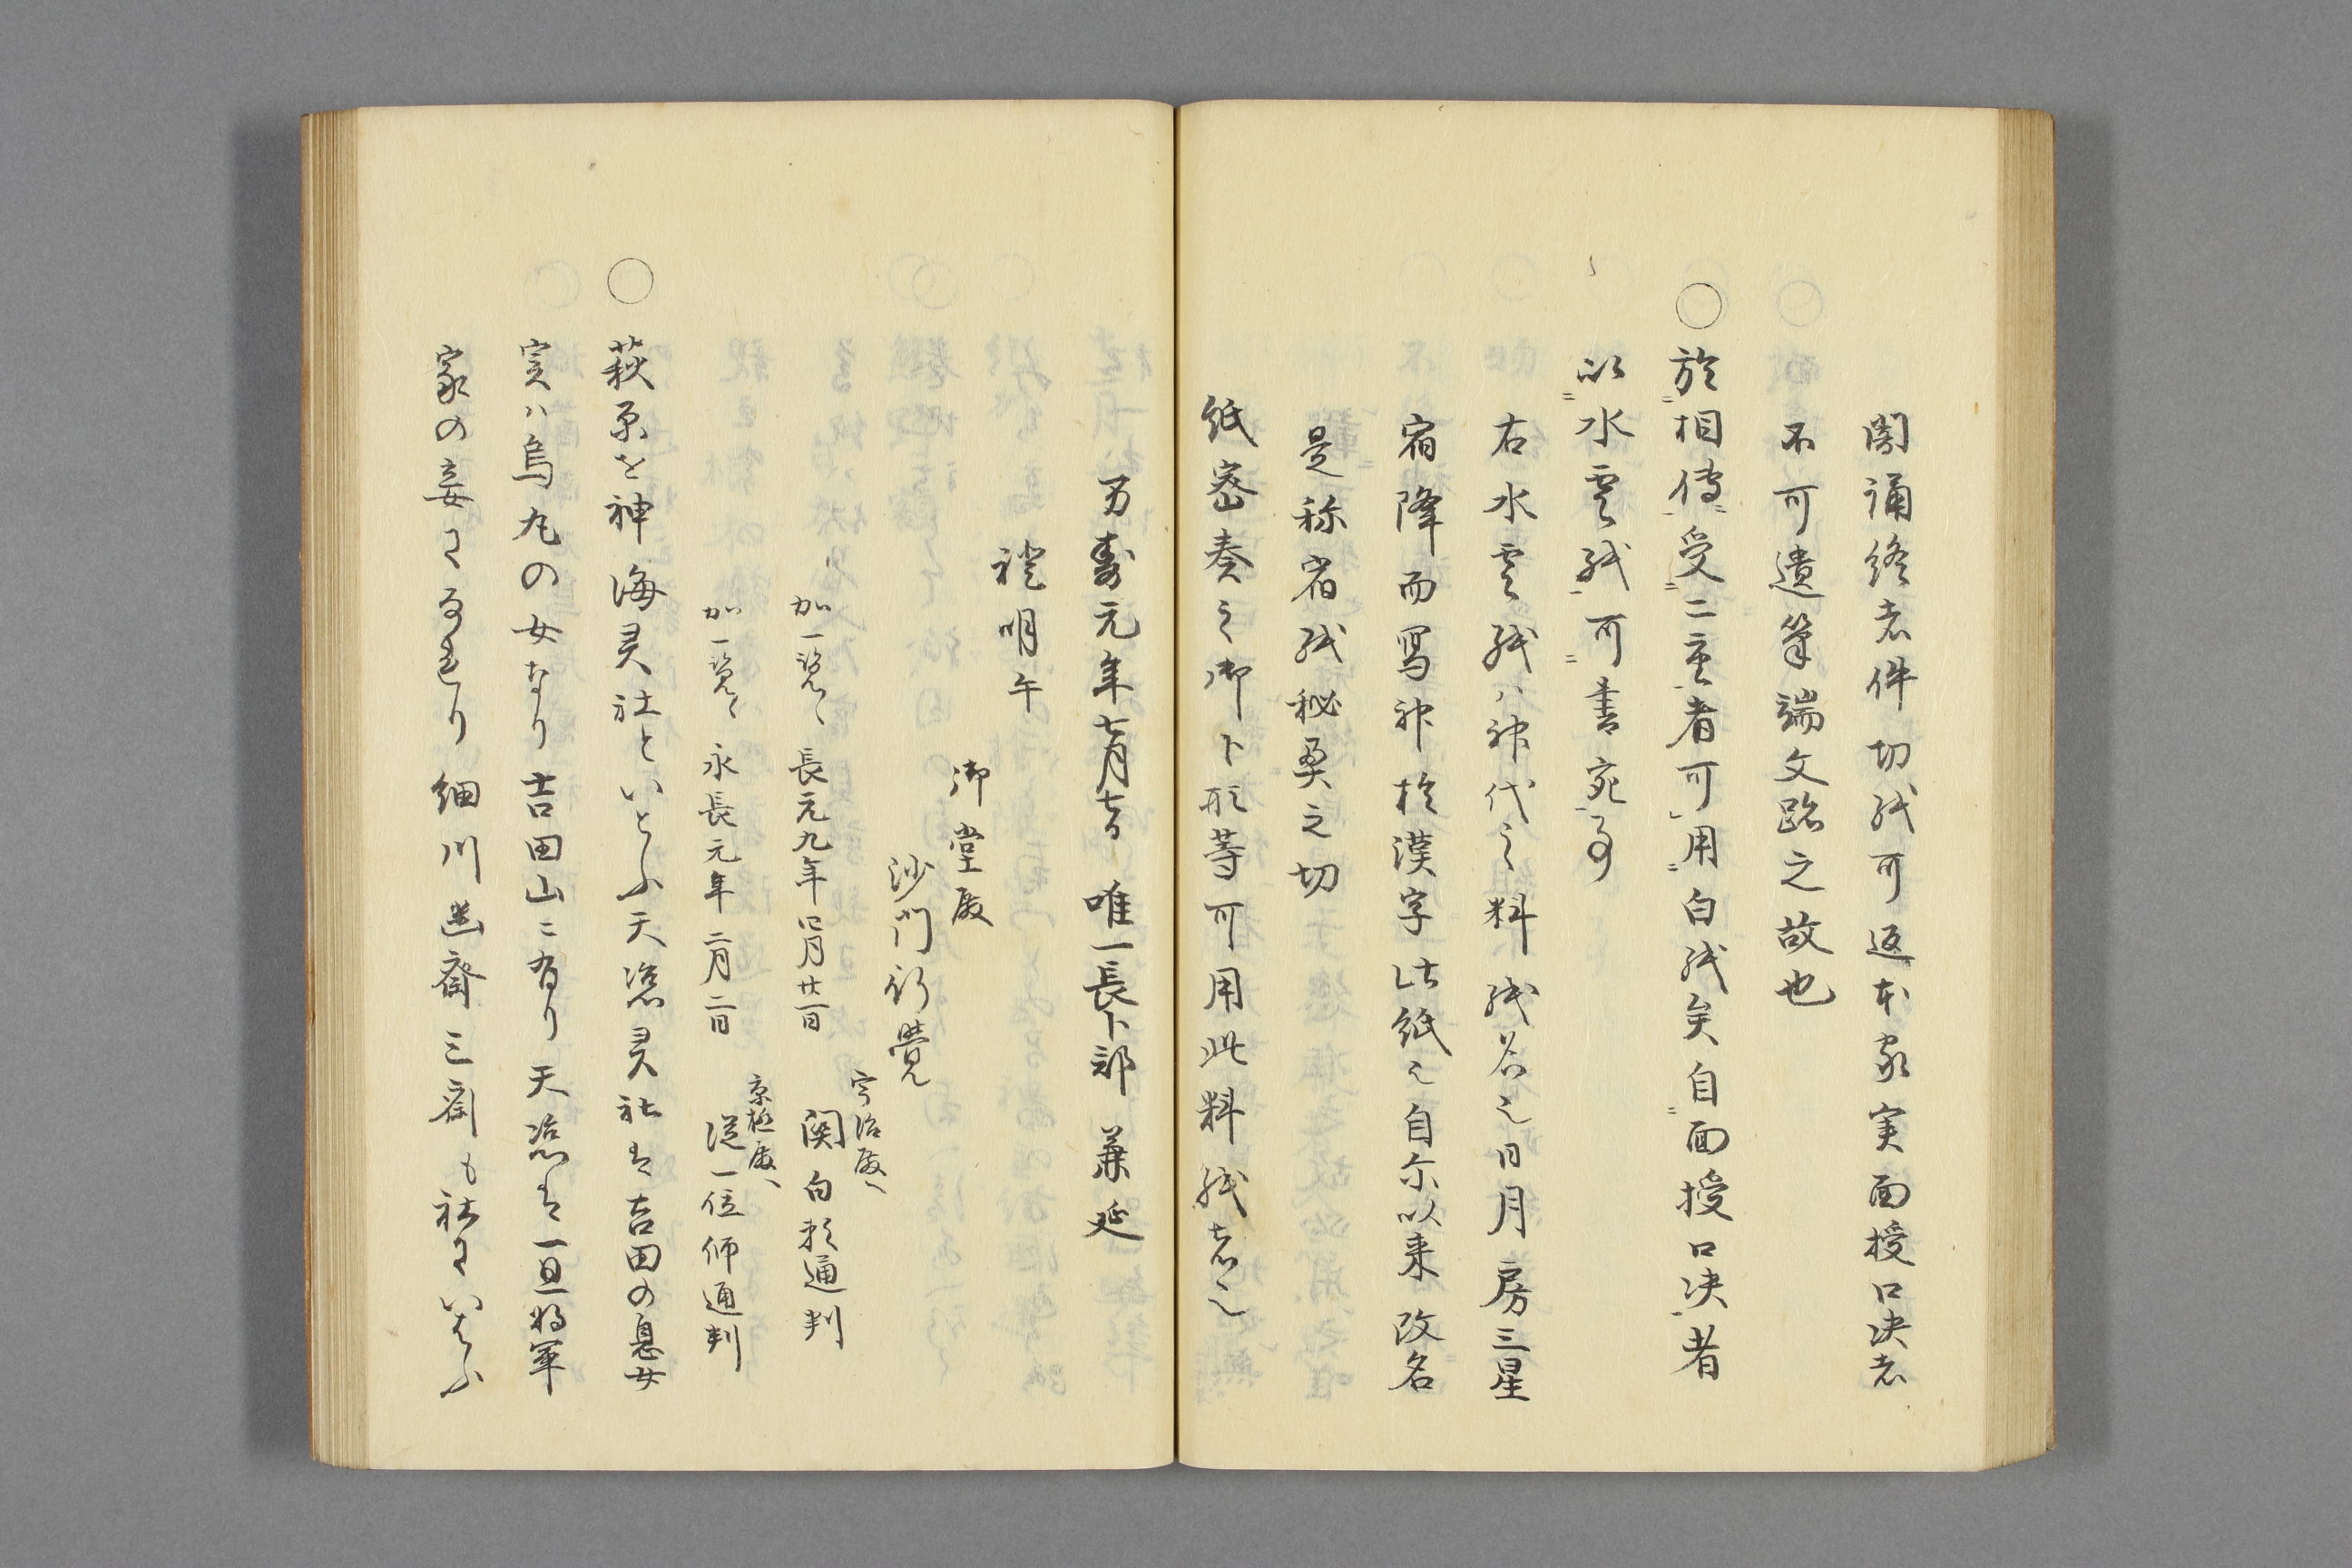 閲誦終者件切紙可返本家実面授口决者
不可遺筆端文跡之故也
○於相傳受二重者可用白紙矣自面授口决者
以水雲紙可書宛事
右水雲紙ハ神代之料紙名之日月房三星
宿降而写神於漢字此紙之自尓以来改名
是称宿紙秘奥之切
紙密奏之御卜形等可用此料紙者也
万寿元年七月七日 唯一長卜部 兼延
證明午
御堂殿
沙門行覺
宇治殿
加一覧々 長元九年四月廿一日 関白頼通判
京極殿
加一覧々 永長元年二月二日 従一位師通判
○萩原を神海灵社といとふ天滋灵社は吉田の息女
実ハ烏丸の女なり吉田山ニ有り天滋は一旦将軍
家の妾になれり細川幽齋三斎も社にいはふ